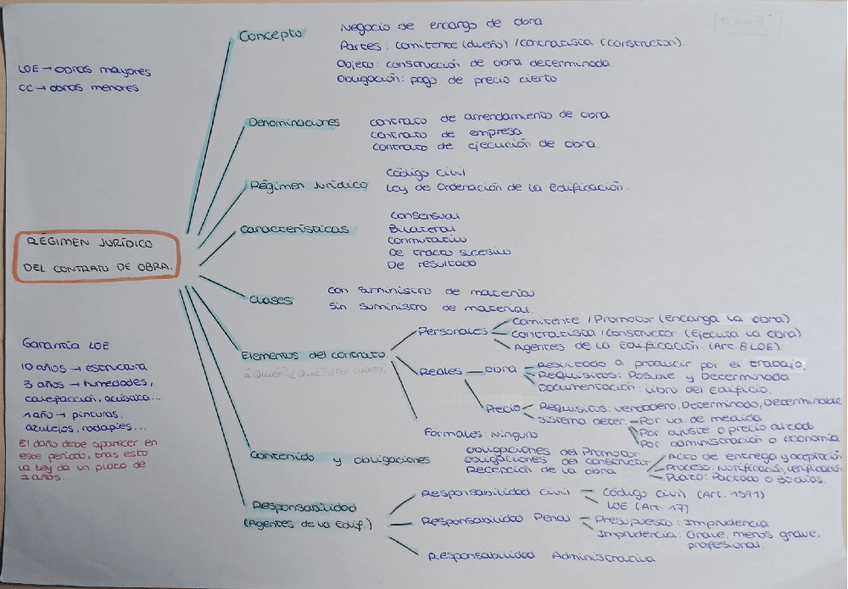 LOE → obras mayores
CC → obras menores
RÉGIMEN JURÍDICO
DEL CONTRATO DE OBRA.
Garantía LOE
10 años → estructura
3 años → humedades,
calefacción, acústica...
1 año → pinturas,
azulejos, rodapies...
El daño debe aparecer en
este periodo, tras esto
la Ley da un plazo de
2 años.
Concepto
Negocio de encargo de obra.
Partes: comitente (dueño) / contratista (constructor).
Objeto: construcción de obra determinada.
Obligación: pago de precio cierto
Denominaciones
contrato de arrendamiento de obra
contrato de empresa
contrato de ejecución de obra.
Régimen Jurídico
Código Civil
Ley de Ordenación de la Edificación.
Características
Consensual
Bilateral
Conmutativo
De tracto sucesivo
De resultado
Clases
Con suministro de material
Sin suministro de material.
Elementos del contrato
¿Quién? ¿Qué? ¿Por cuánto?
Personales
Comitente / Promotor (Encarga la obra)
Contratista / Constructor (Ejecuta la obra)
Agentes de la Edificación. (Art. 8 LOE).
Reales
obra
Resultado a producir por el trabajo.
Requisitos: Posible y Determinada
Documentación: Libro del Edificio.
Precio
Requisitos: verdadero, Determinado, Determinable
Sistema deter
Por ud de medida
Por ajuste o precio alzado
Por administración o economía
Formales: ninguno
Contenido y obligaciones
obligaciones del Promotor
obligaciones del constructor
Recepción de la obra
Acto de entrega y aceptación
Proceso: notificación, verificación
Plazo: Pactado o 30 días.
Responsabilidad
(Agentes de la Edif.)
Responsabilidad Civil
Código Civil (Art. 1591)
LOE (Art. 17)
Responsabilidad Penal
Presupuesto: Imprudencia
Imprudencia: Grave, menos grave,
profesional.
Responsabilidad Administrativa